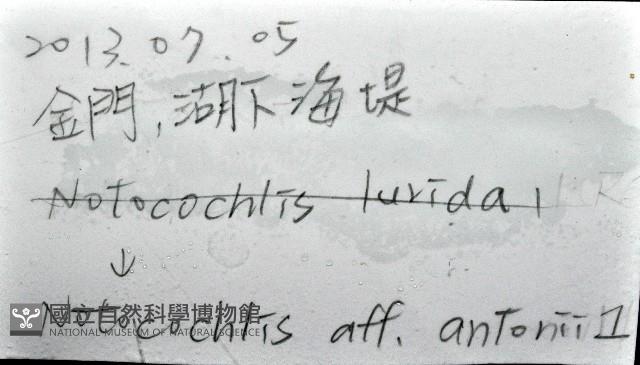 2013.07.05
金門,湖下海堤
Notocochlis lurida 1
↓
Notocochlis aff. antonii 1
國立自然科學博物館
NATIONAL MUSEUM OF NATURAL SCIENCE